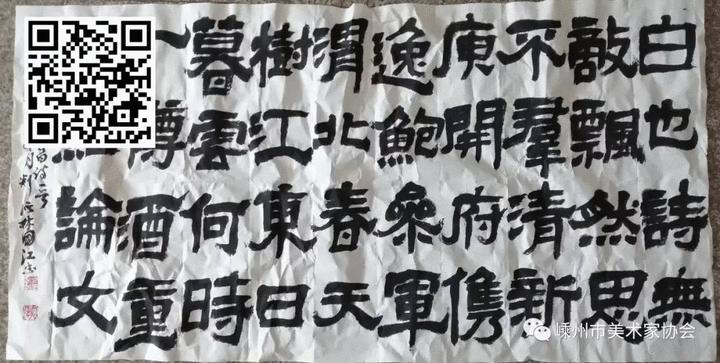 白也詩無
敵飄然思
不羣清新
庾開府儁
逸鮑參軍
渭北春天
樹江東日
暮雲何時
一樽酒重
論文
嵊州市美术家协会